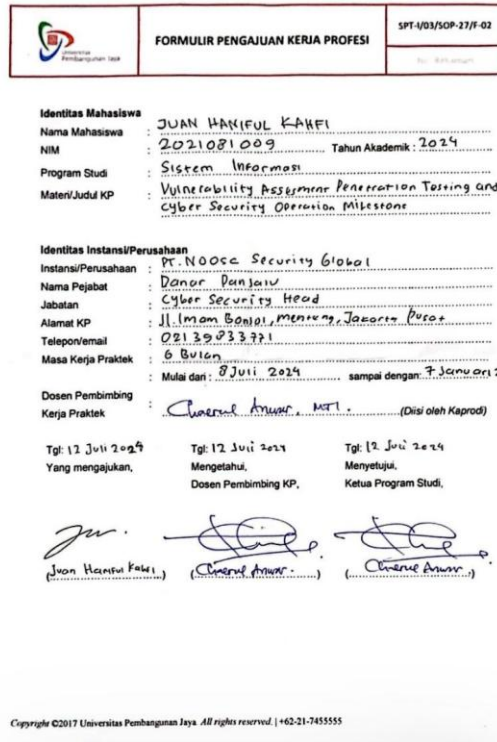 Universitas
Pembangunan Jaya
FORMULIR PENGAJUAN KERJA PROFESI
SPT-I/03/SOP-27/F-02
Identitas Mahasiswa
Nama Mahasiswa : JUAN HANIFUL KAHFI
NIM : 2021081009 Tahun Akademik : 2024
Program Studi : Sistem Informasi
Materi/Judul KP : Vulnerability Assesment Penetration Testing and
Cyber Security Operation Milestone
Identitas Instansi/Perusahaan
Instansi/Perusahaan : PT. NOOSC Security Global
Nama Pejabat : Danar
Jabatan : Cyber Security Head
Alamat KP : Jl. Imam Bonjol, Menteng, Jakarta Pusat
Telepon/email : 02139833771
Masa Kerja Praktek : 6 Bulan
: Mulai dari : 8 Juli 2024 sampai dengan: 7 Januari
Dosen Pembimbing
Kerja Praktek : Chaerul Anwar, MTI. (Diisi oleh Kaprodi)
Tgl: 12 Juli 2024 Tgl: 12 Juli 2024 Tgl: 12 Juli 2024
Yang mengajukan, Mengetahui, Menyetujui,
Dosen Pembimbing KP, Ketua Program Studi,
(Juan Haniful Kahfi) (Chaerul Anwar.) (Chaerul Anwar.)
Copyright ©2017 Universitas Pembangunan Jaya. All rights reserved. | +62-21-7455555